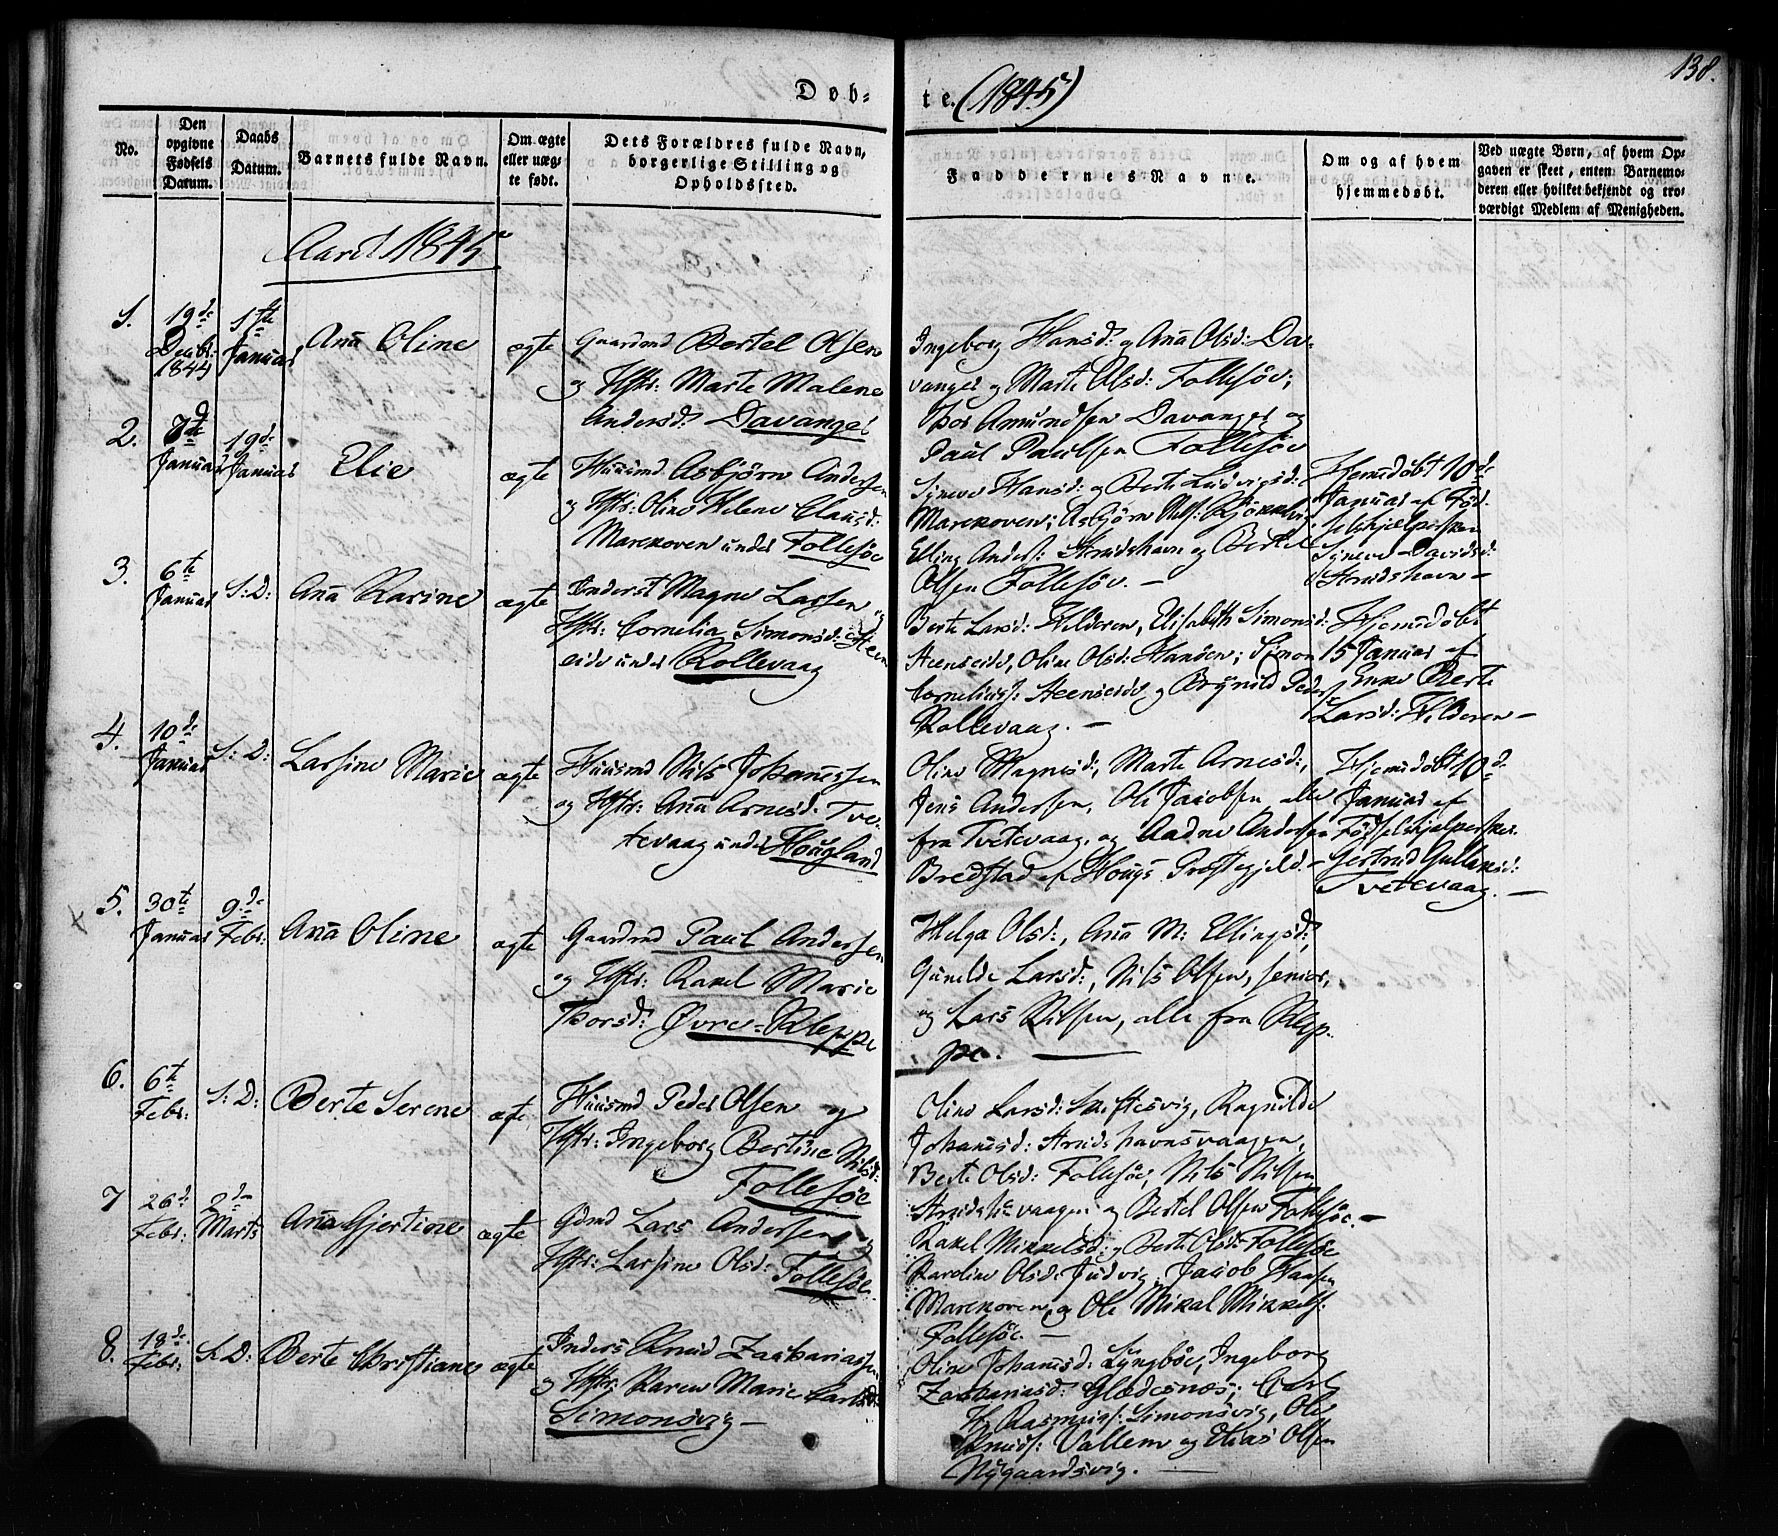 138.
Døb-te. (1845)
No.
Den opgivne Fødsels Datum.
Daabs Datum.
Barnets fulde Navn.
Om ægte eller uæg-te født.
Dets Forældres fulde Navn, borgerlige Stilling og Opholdssted.
Faddernes Navne.
Om og af hvem hjemmedøbt.
Ved uægte Børn, af hvem Op-gaven er skeet, enten Barnemo-deren eller hvilket bekjendt og tro-værdigt Medlem af Menigheden.
Aaret 1845
1.
19de
Decbr:
1844
1ste
Januar
Aña Oline
ægte
Gaardmd Bertel Olsen
og Hstr: Marte Malene
Andersd: Davanger
Ingeborg Hansd: og Aña Olsd: Da-
vanger og Marte Olsd: Follesöe;
Thor Amundsen Davanger og
Paul Paulsen Follesöe
2.
Januar
19de
Januar
Elie
ægte
Huusmd Asbjörn Andersen
og Hstr: Oline Helene Clausd:
Marekoven under Follesöe
Syneve Hansd: og Berte Ludvigsd:
Marekoven; Asbjörn Nils:
Elling Anders: Strudshavn og Bertel
Olsen Follesöe. —
Hjemedöbt 10de
Januar af Föd-
selshjelpersken
Syneve Davidsd:
Strudshavn —
3.
6te
Januar
S: D:
Aña Karine
ægte
Inderst Magne Larsen og
Hstr: Cornelia Simonsd: Steen-
eide under Rollevaag
Berte Larsd: Hilderen, Elisabeth Simonsd:
Steenseide, Oline Olsd: Handen; Simon
Cornelius: Steenseide og Brynild Peders:
Rollevaag. —
Hjemedöbt
15 Januar af
Enke Berte
Larsd: Hilderen —
4.
10de
Januar
S: D:
Larsine Marie
ægte
Huusmd Nils Johañessen
og Hstr: Aña Arnesd: Tve-
tevaag under Hougland
Oline Magnesd:, Marte Arnesd:,
Jens Andersen, Ole Jacobsen alle
fra Tvetevaag, og Aadne Andersen
Bredstad af Hougs Præstegjeld. —
Hjemedöbt 10de
Januar af
Födselshjelpersken
Gertrud Gullaksd:
Tvetevaag. —
5.
30te
Januar
9de
Febr:
Aña Oline
ægte
Gaardmd Paul Andersen
og Hstr: Rakel Marie
Thorsd: Øvre-Kleppe
Helga Olsd:, Aña M: Ellingsd:,
Gunilde Larsd:, Nils Olsen, senior,
og Lars Nilsen, alle fra Klep-
pe. —
6.
6te
Febr:
S: D:
Berte Serene
ægte
Huusmd Peder Olsen og
Hstr: Ingeborg Bertine Nilsd:
Follesöe
Oline Larsd: Skiftesvig, Ragnilde
Johañesd: Strudshavnsvaagen,
Berte Olsd: Follesöe, Nils Nilsen
og Bertel Olsen Follesöe. —
7
26de
Febr:
2den
Marts
Aña Gjertine
ægte
Gdmd Lars Andersen og
Hstr: Larsine Olsd: Follesöe.
Rakel Mikkelsd: og Berte Olsd: Follesöe
Karoline Olsd: Judvig, Jacob Hansen
Marekoven og Ole Mikal Mikkels:
Follesöe. —
8.
18de
Febr:
S: D:
Berte Christiane
ægte
Inders Knud Zachariassen
og Hstr: Karen Marie Carlsd:
Simonsvig —
Oline Johañesd: Lyngböe, Ingeborg
Zachariasd: Glædesnæs; Carl
H: Rasmus: Simonsvig, Ole
Knuds: Vallem og Elias Olsen
Nygaardsvig. —